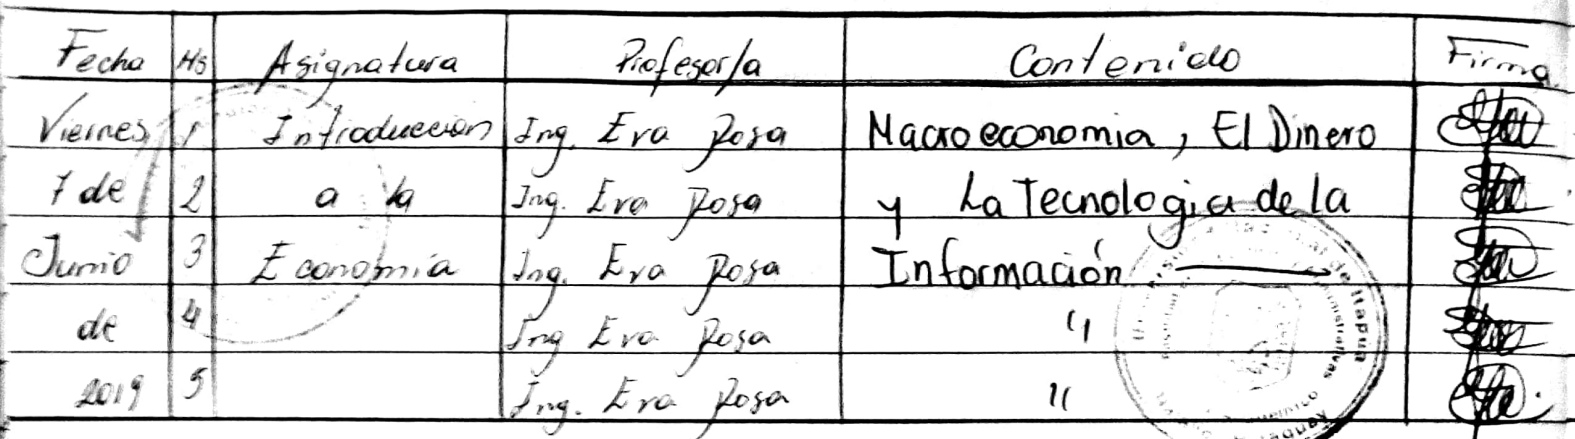 Fecha Hs Asignatura Profesor/a Contenido Firma
Viernes 1 Introduccion Ing. Eva Rosa Macroeconomia, El Dinero
7 de 2 a la Ing. Eva Rosa y La Tecnologia de la
Junio 3 Economia Ing. Eva Rosa Información
de 4 Ing Eva Rosa "
2019 5 Ing. Eva Rosa "
de Itapua